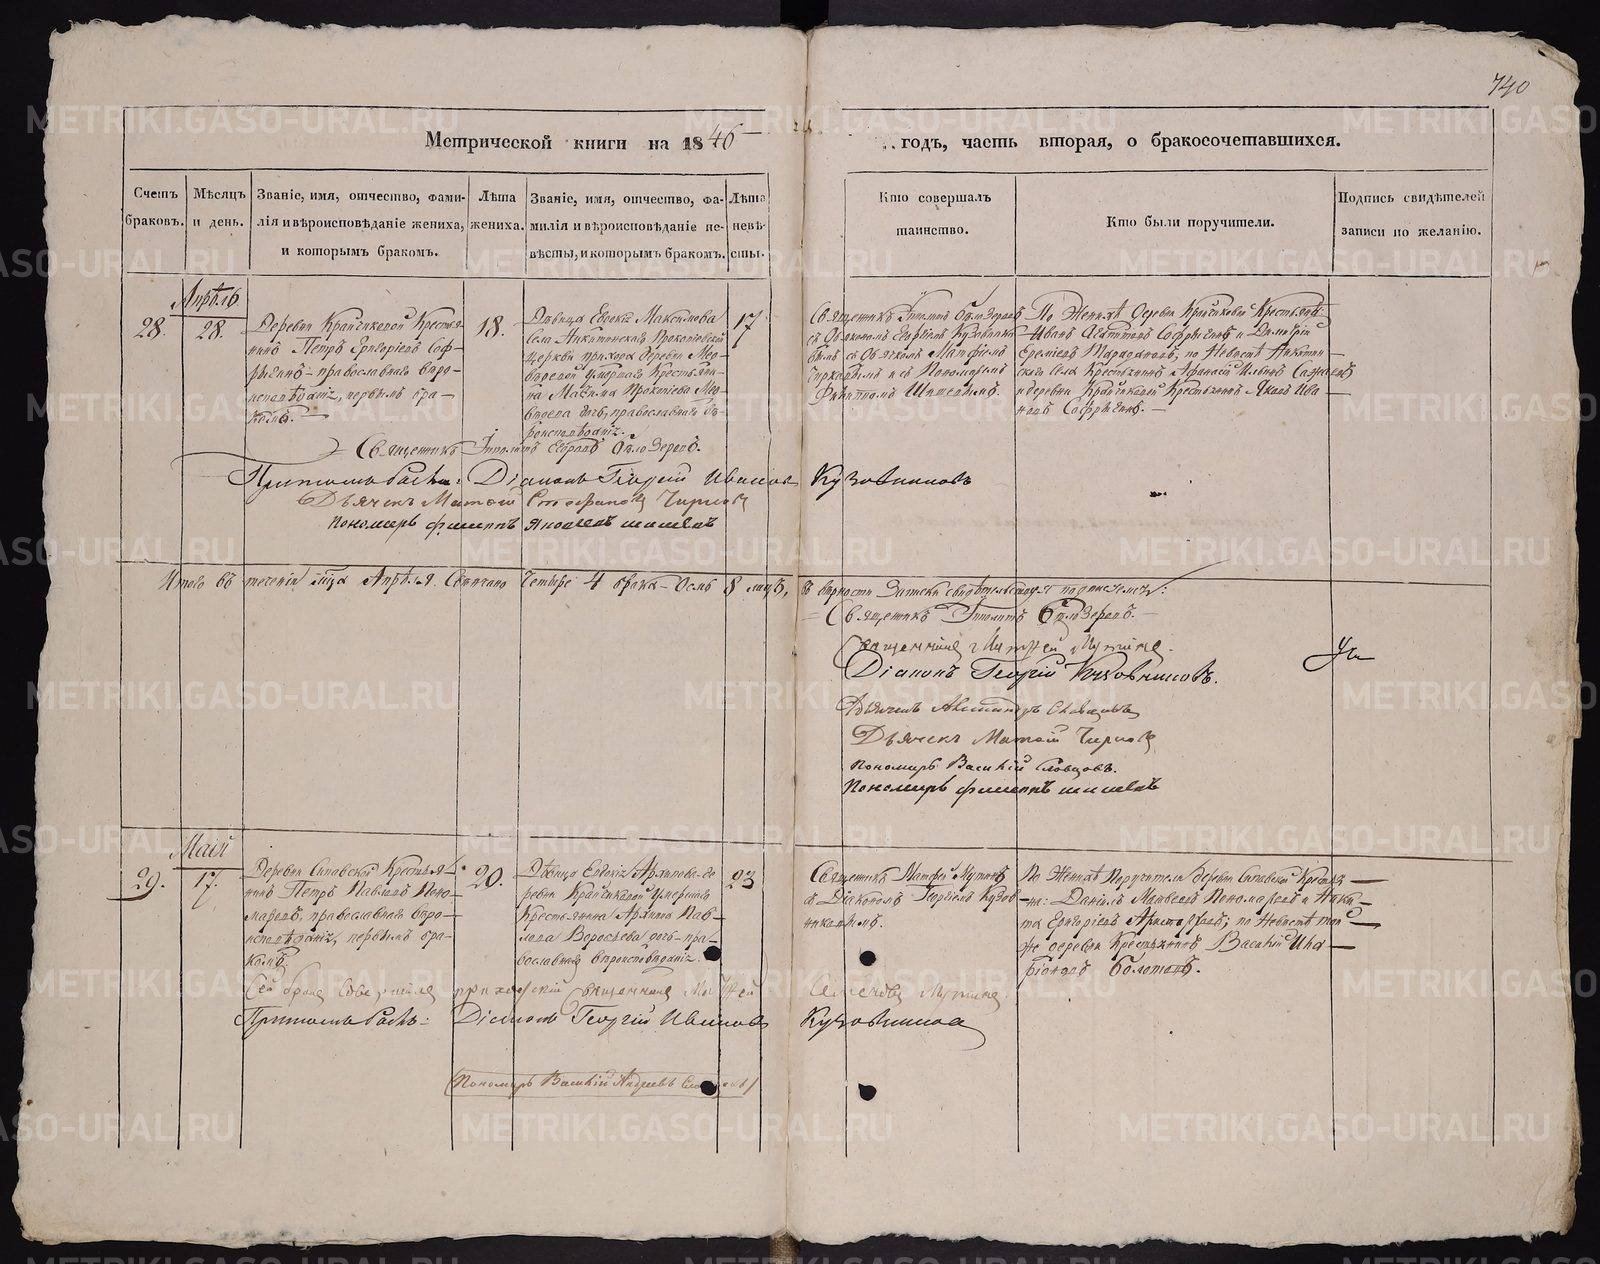 740
Метрической книги на 1846
годъ, часть вторая, о бракосочетавшихся.
Счетъ браковъ.
Мѣсяцъ и день.
Званіе, имя, отчество, фами-
лія и вѣроисповѣданіе жениха,
и которымъ бракомъ.
Лѣта
жениха.
Званіе, имя, отчество, фа-
милія и вѣроисповѣданіе не-
вѣсты, и которымъ бракомъ.
Лѣта
невѣ-
сты.
Кто совершалъ
таинство.
Кто были поручители.
Подпись свидѣтелей
записи по желанію.
Апрѣль
28.
28.
Деревни Крайчиковой Крестья-
нинъ Петръ Григорьевъ Соф-
рыгинъ православнаго вѣро-
исповѣданія, первымъ бра-
комъ.
18.
Дѣвица Евдокія Максимова
села Никитинскаго Прокопіевской
церкви прихода деревни Мед-
вѣдевой умершаго Крестьяни-
на Максима Прокопіева Мед-
вѣдева дочь, православнаго вѣ-
роисповѣданія.
17
Священникъ Ипполитъ Бѣлозеровъ
съ Діакономъ Георгіемъ Кузовнико-
вымъ съ Дьячкомъ Матфіемъ
и съ Пономаремъ
Филиппомъ Шишевымъ.
По Женихѣ Деревни Крайчиковой Крестьяне
Иванъ Софрыгинъ и Димитрій
Еремѣевъ по Невѣстѣ Никитин-
скаго села Крестьянинъ Афанасій Ильинъ
и деревни Крайчиковой Крестьянинъ Яковъ Ива-
новъ Софрыгинъ.
Священникъ Ипполитъ Бѣлозеровъ.
Притомъ былъ: Діаконъ Георгій Ивановъ Кузовниковъ
Дьячекъ Матфій Стефановъ
Пономарь Филиппъ Яковлевъ Шишевъ
Итого въ теченіи м-ца Апрѣля Свѣнчано Четыре 4 брака Осмь 8 лицъ,
въ вѣрности Записки свидѣтельствуемъ подписомъ:
Священникъ Ипполитъ Бѣлозеровъ.
Священникъ Матфей Мутинъ.
Діаконъ Георгій Кузовниковъ.
Дьячекъ Александръ Словцовъ
Дьячекъ Матфій
Пономарь Василій Словцовъ.
Пономарь Филиппъ Шишевъ
Маій
29.
17.
Деревни Крестья-
нинъ Петръ Павловъ Поно-
маревъ, православнаго вѣро-
исповѣданія, первымъ бра-
комъ
20.
Дѣвица Евдокія Архипова де-
ревни Крайчиковой умершаго
Крестьянина Архипа Пав-
лова дочь пра-
вославнаго вѣроисповѣданія.
23
Священникъ Матфей Мутинъ
съ Діакономъ Георгіемъ Кузов-
никовымъ.
По Женихѣ Поручители деревни Крестья-
не: Даніилъ Матвѣевъ Пономаревъ и Ники-
та Григорьевъ по Невѣстѣ той
же деревни Крестьянинъ Василій Ила-
ріоновъ Болотовъ.
Сей бракъ совершилъ приходскій Священникъ Матфей Мутинъ
Притомъ былъ: Діаконъ Георгій Ивановъ Кузовниковъ
Пономарь Василій Андреевъ Словцовъ
METRIKI.GASO-URAL.RU